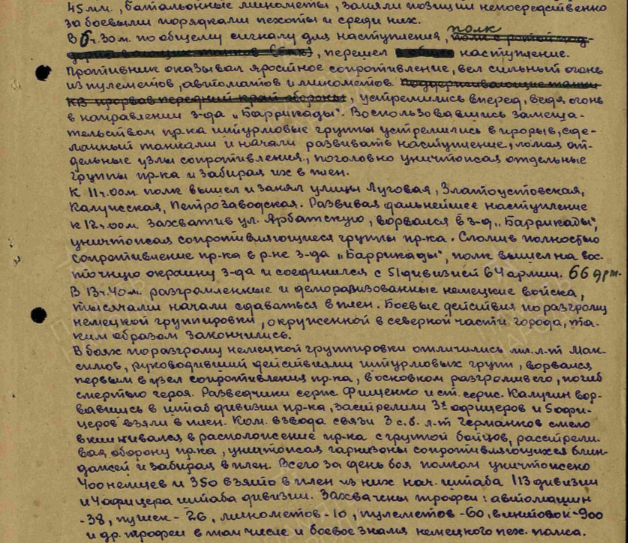 45 мм., батальонные минометы, заняли позиции непосредственно
за боевыми порядками пехоты и среди них.
В 6ч. 30м. по общему сигналу для наступления, полк
перешел наступление.
Противник оказывал яростное сопротивление, вел сильный огонь
из пулеметов, автоматов и минометов. Поддерживающие танки
КВ прорвав передний край обороны, устремились вперед, ведя огонь
в направлении з-да „Баррикады". Воспользовавшись замеша-
тельством пр-ка штурмовые группы устремились в прорыв, сде-
ланный танками и начали развивать наступление, ломая от-
дельные узлы сопротивления, поголовно уничтожая отдельные
группы пр-ка и забирая их в плен.
К 11ч.00м. полк вышел и занял улицы Луговая, Златоустовская,
Калужская, Петрозаводская. Развивая дальнейшее наступление
к 12ч.00м. захватив ул. Арбатскую, ворвался в з-д „Баррикады",
уничтожая сопротивляющиеся группы пр-ка. Сломив полностью
сопротивление пр-ка в р-не з-да „Баррикады", полк вышел на вос-
точную окраину з-да и соединился с 51 дивизией 64 армии.
В 13ч.40м. разгромленные и деморализованные немецкие войска,
тысячами начали сдаваться в плен. Боевые действия по разгрому
немецкой группировки, окруженной в северной части города, та-
ким образом закончились.
В боях по разгрому немецкой группировки отличились мл. л-т Мак-
симов, руководивший действиями штурмовых групп, ворвался
первым в узел сопротивления пр-ка, в основном разгромив его, погиб
смертью героя. Разведчики серж. Фищенко и ст. серж. Калугин вор-
вавшись в штаб дивизии пр-ка, застрелили 3х офицеров и 5 офи-
церов взяли в плен. Ком. взвода связи 3 с.б. л-т Германков смело
вклинивался в расположение пр-ка с группой бойцов, расстрели-
вая оборону пр-ка, уничтожая гарнизоны сопротивляющихся блин-
дажей и забирая в плен. Всего за день боя полком уничтожено
400 немцев и 350 взято в плен из них нач. штаба 113 дивизии
и 4 офицера штаба дивизии. Захвачены трофеи: автомашин
-38, пушек - 26, минометов - 10, пулеметов - 60, винтовок - 900
и др. трофеи в том числе и боевое знамя немецкого пех. полка.